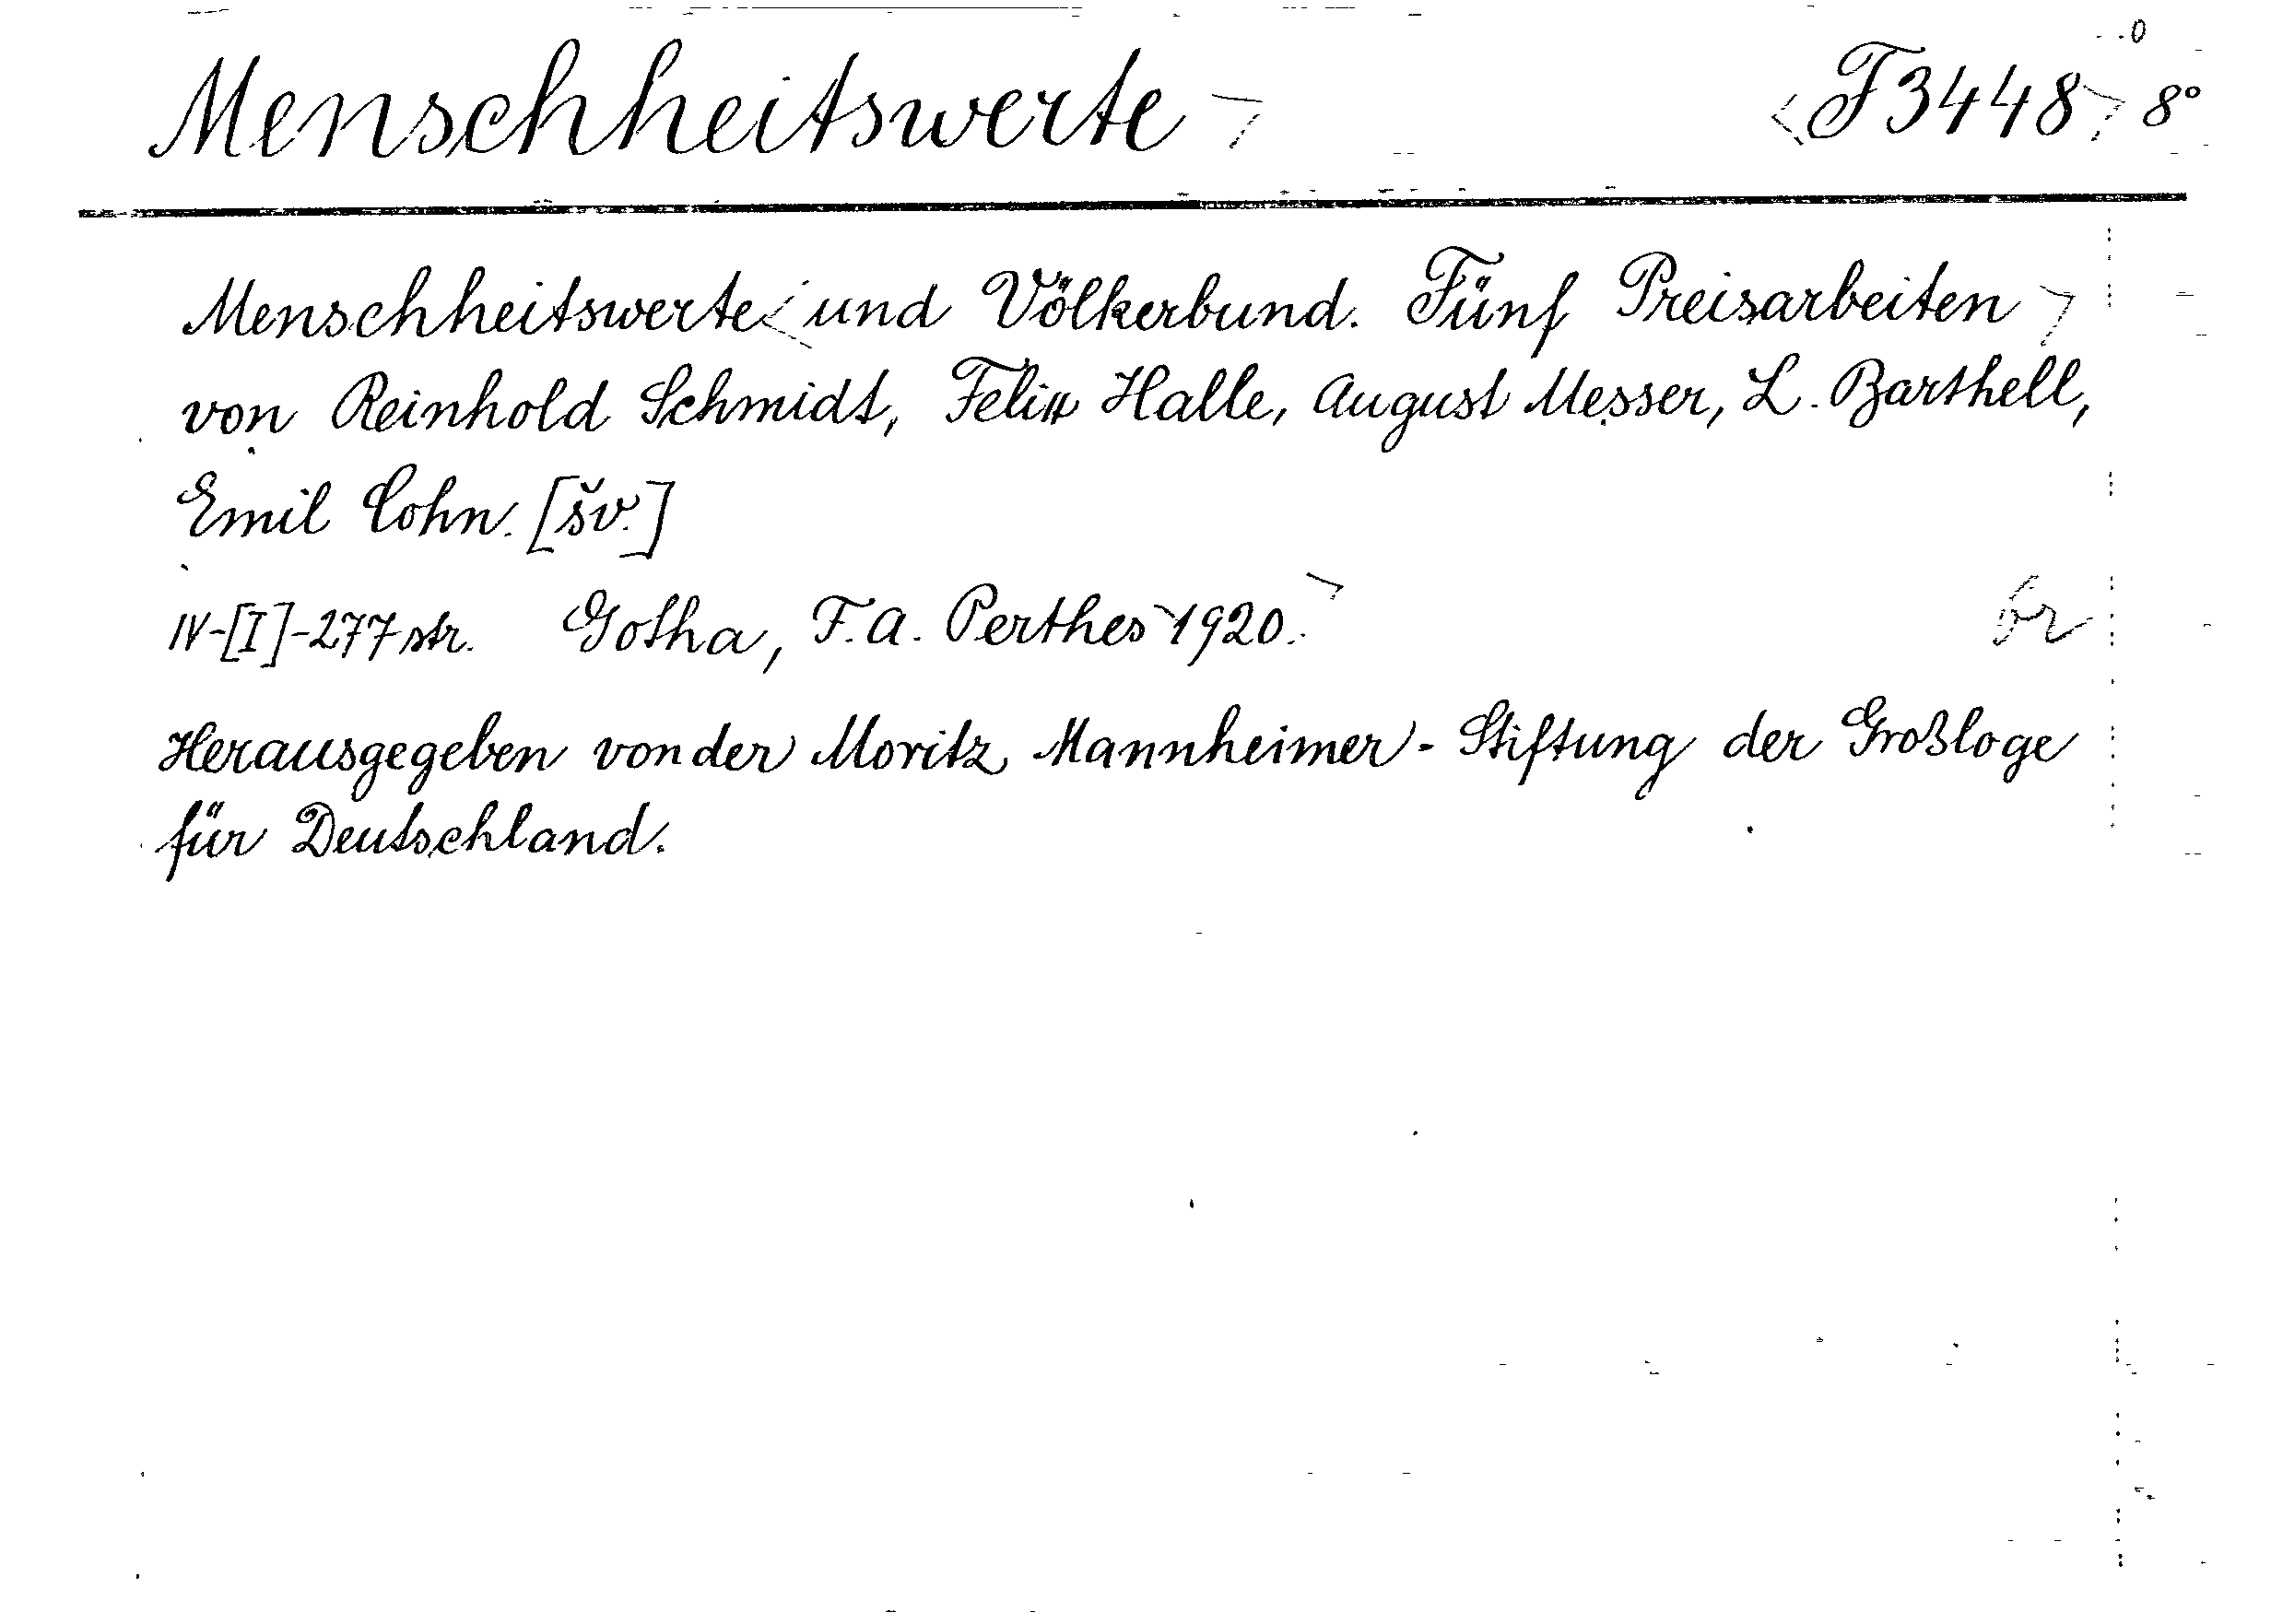 Menschheitswerte F3448 8°
Menschheitswerte und Völkerbund. Fünf Preisarbeiten
von Reinhold Schmidt, Felix Halle, August Messer, L. Barthell,
Emil Cohn. [šv.]
IV-[I]-277 str. Gotha, F. A. Perthes 1920. br
Herausgegeben von der Moritz Mannheimer-Stiftung der Großloge
für Deutschland.